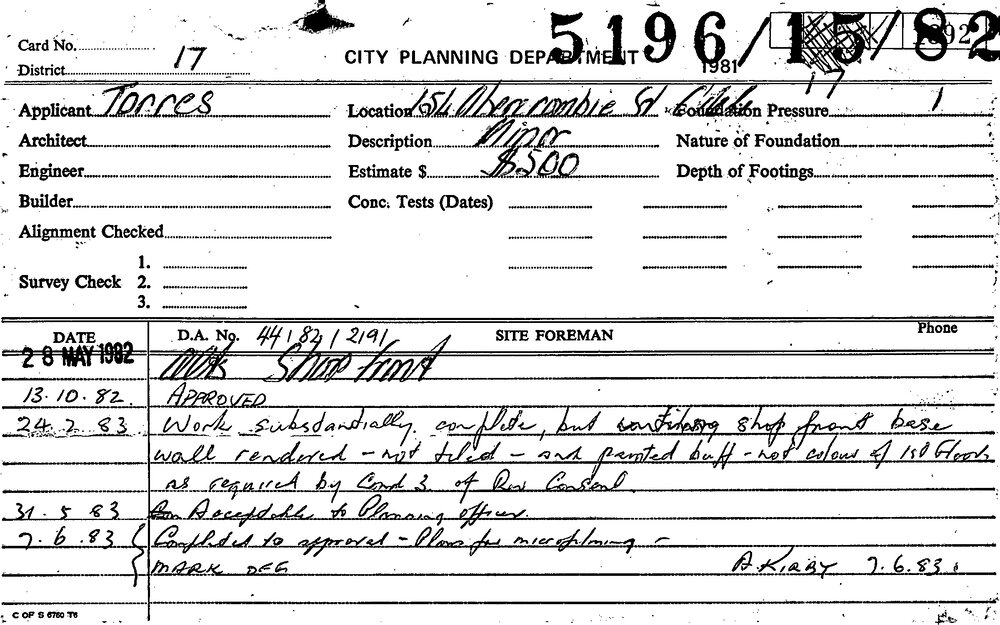 5196/15/82
Card No.
17
CITY PLANNING DEPARTMENT
District
1981
17
Applicant Torres
Location 156 Abercrombie St
Foundation Pressure
1
Architect
Description Minor
Nature of Foundation
Engineer
Estimate $ $500
Depth of Footings
Builder
Conc. Tests (Dates)
Alignment Checked
Survey Check 1.
2.
3.
DATE
D.A. No. 44/82/2191
SITE FOREMAN
Phone
28 MAY 1982
Shop front
13.10.82. APPROVED
24 2 83 Work substantially complete, but shop front base
wall rendered - not tiled - and painted buff - not colour of 1st Floor
as required by Cond 3 of Consent.
31.5 83 Acceptable to Planning officer.
7.6.83 Completed to approval - Plans for microfilming -
MARK OFF A KIRBY 7.6.83.
C OF S 6760 T6